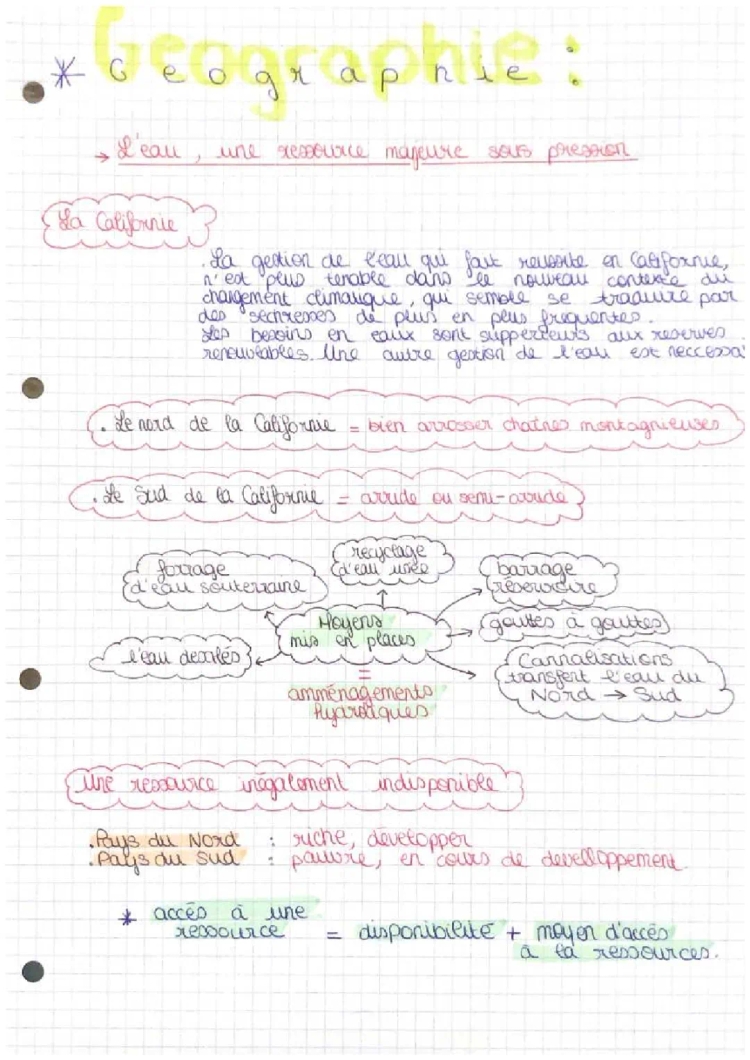 Geographie :
* Geographie :
→ L'eau, une ressource majeure sous pression
La Californie
. La gestion de l'eau qui fait reussite en Californie,
n'est plus tenable dans le nouveau contexte du
changement climatique, qui semble se traduire par
des sechresses de plus en plus frequentes.
Les besoins en eaux sont supperieurs aux reserves
renouvelables. Une autre gestion de l'eau est neccessa
. Le nord de la Californie = bien arrosser chaînes montagnieuses
. Le Sud de la Californie = arride ou semi-arride
forrage
d'eau souterraine
recyclage
d'eau usée
barrage
réservoire
Moyens
mis en places
gouttes à gouttes
l'eau desalés
Cannalisations
transfert l'eau du
Nord → Sud
=
amménagements
hydroliques
Une ressource inégalement indisponible
. Pays du Nord : riche, développer
. Pays du Sud : pauvre, en cours de develloppement.
* accès à une
ressource = disponibilité + moyen d'accès
à la ressources.